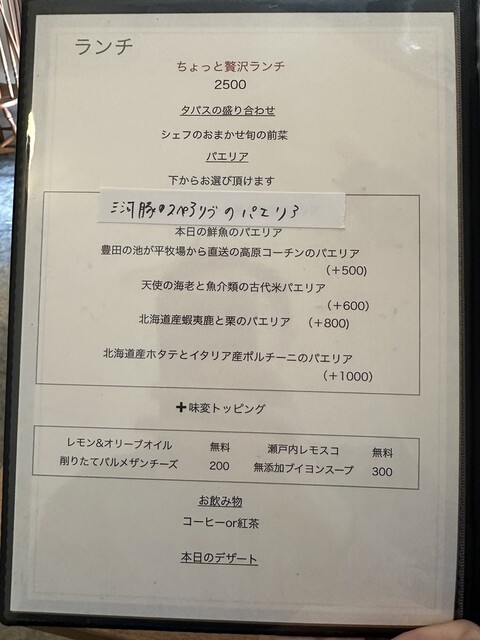 ランチ
ちょっと贅沢ランチ
2500
タパスの盛り合わせ
シェフのおまかせ旬の前菜
パエリア
下からお選び頂けます
三河豚のスペアリブのパエリア
本日の鮮魚のパエリア
豊田の池が平牧場から直送の高原コーチンのパエリア
(+500)
天使の海老と魚介類の古代米パエリア
(+600)
北海道産蝦夷鹿と栗のパエリア (+800)
北海道産ホタテとイタリア産ポルチーニのパエリア
(+1000)
✚味変トッピング
レモン&オリーブオイル 無料 瀬戸内レモスコ 無料
削りたてパルメザンチーズ 200 無添加ブイヨンスープ 300
お飲み物
コーヒーor紅茶
本日のデザート